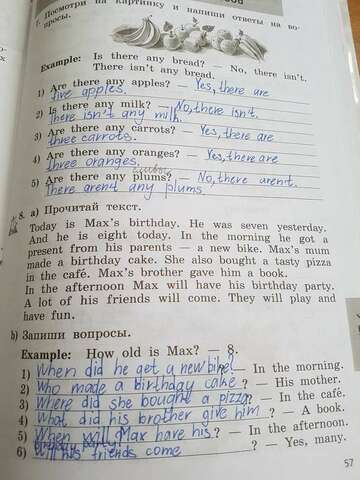 7. Посмотри на картинку и напиши ответы на во-
просы.
Example: Is there any bread? — No, there isn't.
There isn't any bread.
1) Are there any apples? — Yes, there are
five apples.
2) Is there any milk? — No, there isn't.
There isn't any milk.
3) Are there any carrots? — Yes, there are
three carrots.
4) Are there any oranges? — Yes, there are
three oranges. сливы
5) Are there any plums? — No, there aren't.
There aren't any plums
8. a) Прочитай текст.
Today is Max's birthday. He was seven yesterday.
And he is eight today. In the morning he got a
present from his parents — a new bike. Max's mum
made a birthday cake. She also bought a tasty pizza
in the café. Max's brother gave him a book.
In the afternoon Max will have his birthday party.
A lot of his friends will come. They will play and
have fun.
b) Запиши вопросы.
Example: How old is Max? — 8.
1) When did he get a new bike? — In the morning.
2) Who made a birthday cake? — His mother.
3) Where did she bought a pizza? — In the café.
4) What did his brother give him? — A book.
5) When will Max have his? — In the afternoon.
birthday party
6) Will his friends come? — Yes, many.
57